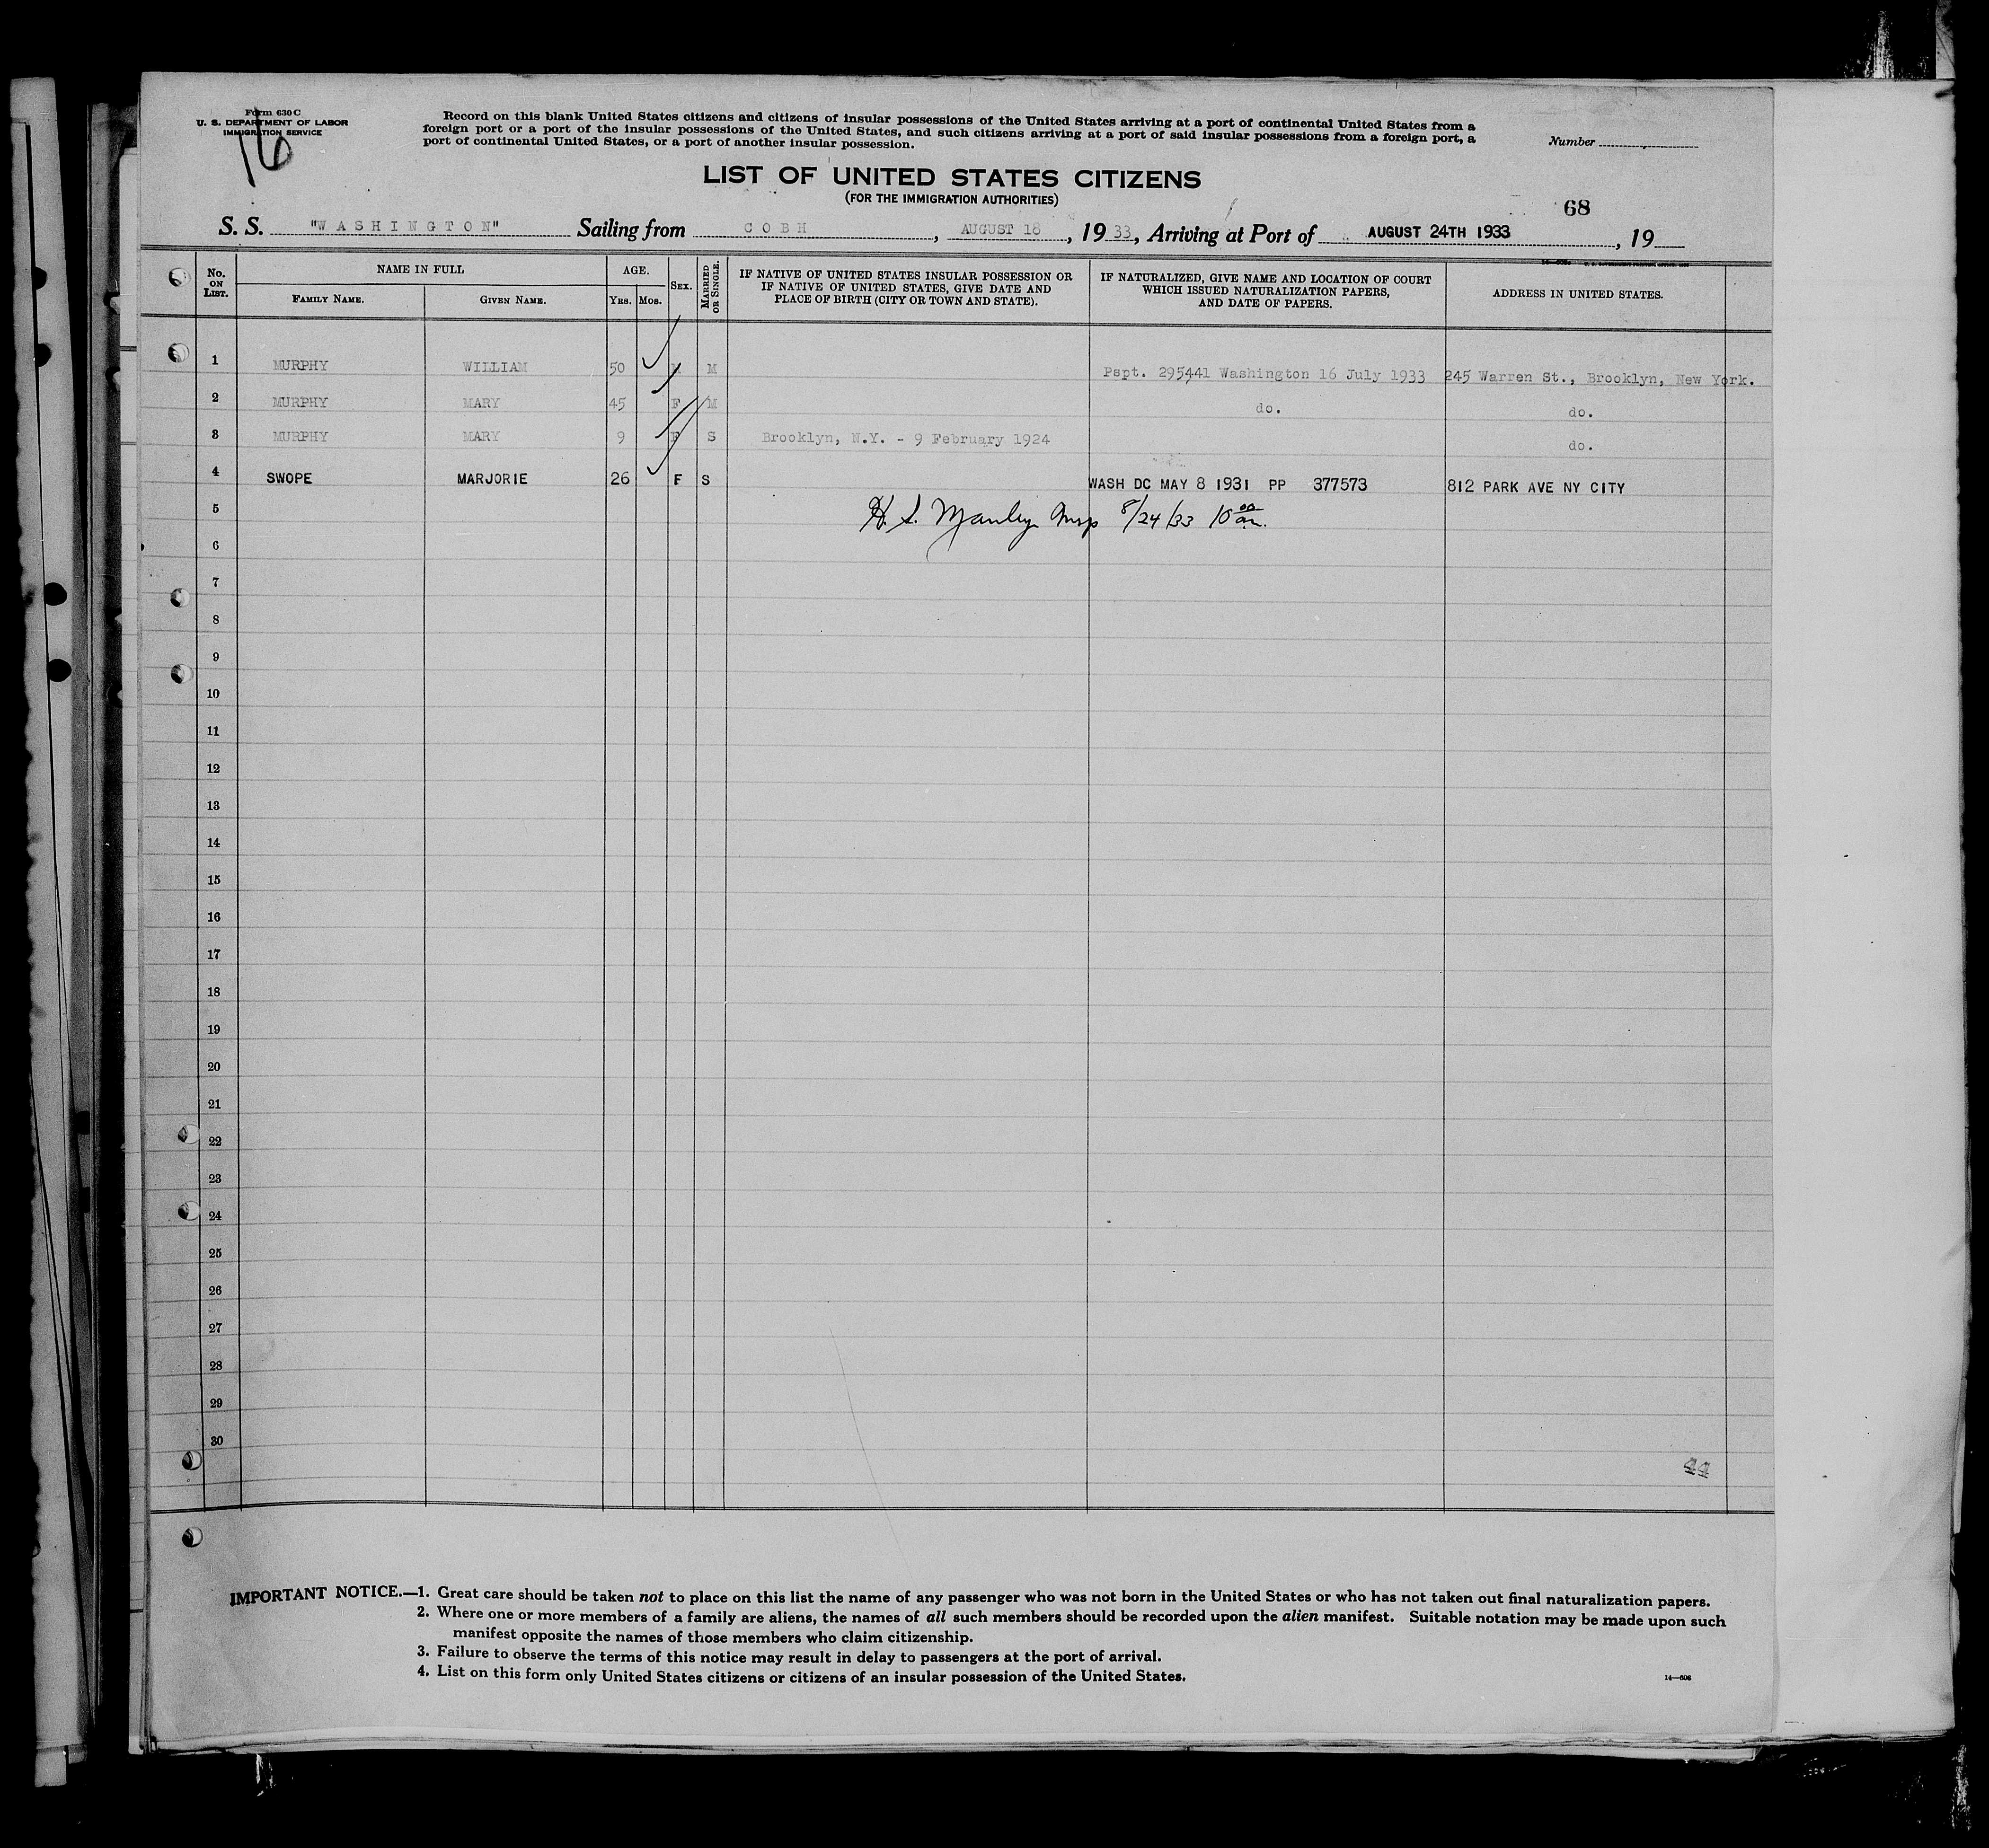 Form 630 C
U. S. DEPARTMENT OF LABOR
IMMIGRATION SERVICE
16
Record on this blank United States citizens and citizens of insular possessions of the United States arriving at a port of continental United States from a
foreign port or a port of the insular possessions of the United States, and such citizens arriving at a port of said insular possessions from a foreign port, a
port of continental United States, or a port of another insular possession.
Number
LIST OF UNITED STATES CITIZENS
(FOR THE IMMIGRATION AUTHORITIES)
68
S. S. "WASHINGTON" Sailing from COBH, AUGUST 18, 1933, Arriving at Port of AUGUST 24TH 1933, 19
No. ON LIST.
NAME IN FULL
FAMILY NAME.
GIVEN NAME.
AGE.
YRS.
MOS.
SEX.
MARRIED OR SINGLE.
IF NATIVE OF UNITED STATES INSULAR POSSESSION OR
IF NATIVE OF UNITED STATES, GIVE DATE AND
PLACE OF BIRTH (CITY OR TOWN AND STATE).
IF NATURALIZED, GIVE NAME AND LOCATION OF COURT
WHICH ISSUED NATURALIZATION PAPERS,
AND DATE OF PAPERS.
ADDRESS IN UNITED STATES.
1 MURPHY WILLIAM 50 M Pspt. 295441 Washington 16 July 1933 245 Warren St., Brooklyn, New York.
2 MURPHY MARY 45 F M do. do.
3 MURPHY MARY 9 F S Brooklyn, N.Y. - 9 February 1924 do.
4 SWOPE MARJORIE 26 F S WASH DC MAY 8 1931 PP 377573 812 PARK AVE NY CITY
5 H. S. Manley Insp 8/24/33 10 00 am.
6
7
8
9
10
11
12
13
14
15
16
17
18
19
20
21
22
23
24
25
26
27
28
29
30
44
IMPORTANT NOTICE.—1. Great care should be taken not to place on this list the name of any passenger who was not born in the United States or who has not taken out final naturalization papers.
2. Where one or more members of a family are aliens, the names of all such members should be recorded upon the alien manifest. Suitable notation may be made upon such
manifest opposite the names of those members who claim citizenship.
3. Failure to observe the terms of this notice may result in delay to passengers at the port of arrival.
4. List on this form only United States citizens or citizens of an insular possession of the United States.